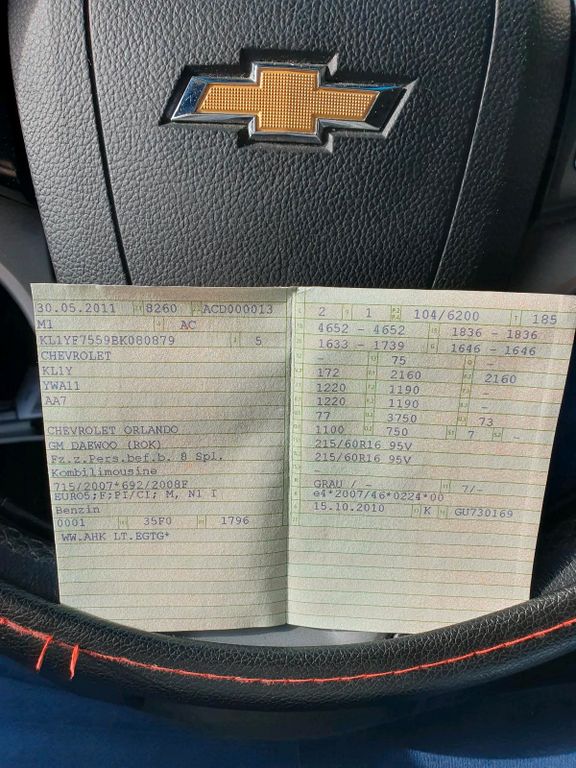 30.05.2011 8260 ACD000013
M1 AC
KL1YF7559BK080879 5
CHEVROLET
KL1Y
YWA11
AA7
CHEVROLET ORLANDO
GM DAEWOO (ROK)
Fz.z.Pers.bef.b. 8 Spl.
Kombilimousine
715/2007*692/2008F
EURO5;F;PI/CI; M, N1 I
Benzin
0001 35F0 1796
WW.AHK LT.EGTG*
2 1 104/6200 185
4652 - 4652 1836 - 1836
1633 - 1739 1646 - 1646
- 75 -
172 2160 2160
1220 1190 -
1220 1190 -
77 3750 73
1100 750 7 -
215/60R16 95V
215/60R16 95V
-
GRAU / - 7/-
e4*2007/46*0224*00
15.10.2010 K GU730169